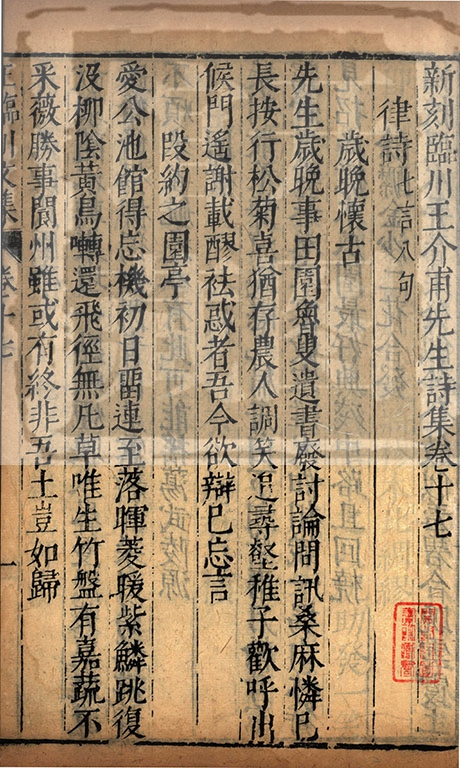 新刻臨川王介甫先生詩集卷十七
律詩七言八句
歲晚懷古
先生歲晚事田園魯叟遺書廢討論問訊桑麻憐已
長按行松菊喜猶存農人調笑追尋壑稚子歡呼出
候門遙謝載醪祛惑者吾今欲辯已忘言
段約之園亭
愛公池館得忘機初日畱連至落暉菱暖紫鱗跳復
沒柳陰黃鳥囀還飛徑無凡草唯生竹盤有嘉蔬不
采薇勝事閬州雖或有終非吾土豈如歸
王臨川文集 卷十七 一